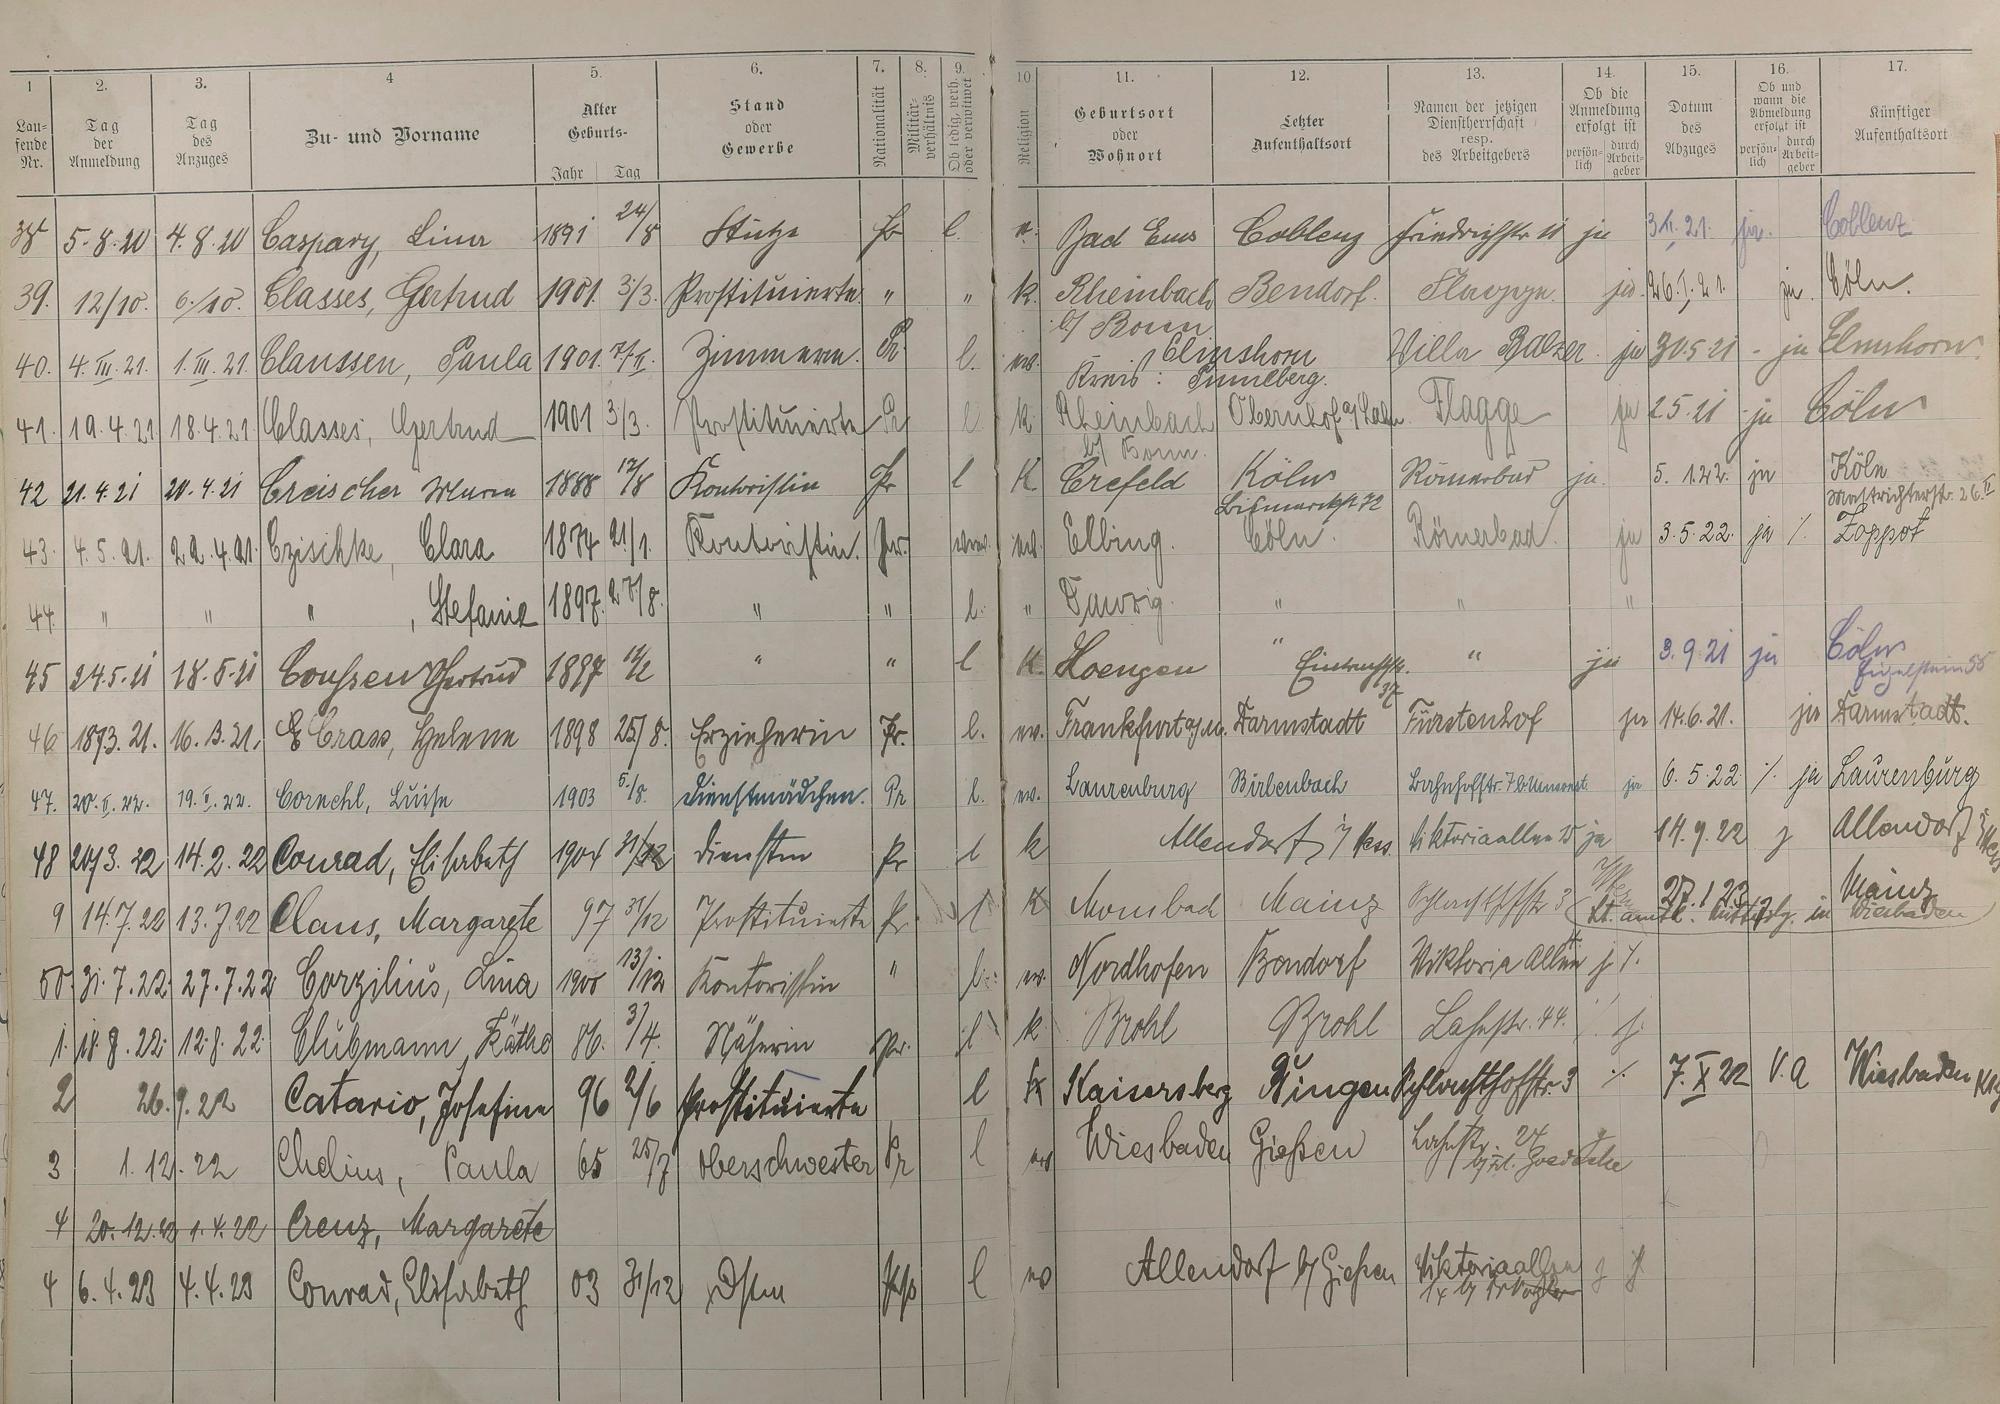 1 2. 3. 4 5. 6. 7. 8. 9. 10 11. 12. 13. 14. 15. 16. 17.
Lau-fende Nr. Tag der Anmeldung Tag des Anzuges Zu- und Vorname Alter Geburts- Jahr Tag Stand oder Gewerbe Nationalität Militär-verhältnis Ob ledig, verh. oder verwitwet Religion Geburtsort oder Wohnort Letzter Aufenthaltsort Namen der jetzigen Dienstherrschaft resp. des Arbeitgebers Ob die Anmeldung erfolgt ist persön-lich durch Arbeit-geber Datum des Abzuges Ob und wann die Abmeldung erfolgt ist persön-lich durch Arbeit-geber Künftiger Aufenthaltsort
38 5.8.20 4.8.20 Caspary, Lina 1891 24/8 Stütze Pr l. Bad Ems Coblenz Friedrichstr 11 ja ja. Coblenz
39. 12/10. 6./10. Classes, Gertrud 1901. 3/3. Prostituierte. " " k. Rheinbach Bendorf. Flagge. ja. 26.I.21. ja. Cöln.
b/ Bonn
40. 4.III.21. 1.III.21 Claussen, Paula 1901. Pr. l. ev. Elmshorn Villa Balzer. ja 30.5.21 - ja Elmshorn.
Kreis: Pinneberg.
41. 19.4.21 18.4.21 Classes, Gertrud 1901 3/3. Prostituierte Pr l k. Rheinbach Obernhof a/ Lahn. Flagge ja 2.5.21 - ja Cöln
b/ Bonn.
42 21.4.21 20.4.21 Creischer Maria 1888 12/8 Kontoristin Pr l K. Crefeld Köln Römerbad ja. 5.1.22. ja Köln
Bismarckstr 72 Mastrichterstr. 26 II
43. 4.5.21. 22.4.21. Czischke, Clara 1874 21/1. Kontoristin. Pr. ev. Elbing. Cöln. Römerbad. ja 3.5.22. ja /. Zoppot
44. " " " , Stefanie 1897. 27/8. " " l. " Danzig. " " "
45 24.5.21 18.5.21 Coußen Gertrud 1897 " " l K. Hoengen " Eintrachtstr. 37 " ja 3.9.21 ja Cöln
Eigelstein 55
46 18/3.21. 16.3.21. Crass, Helene 1898 25/8. Erzieherin Pr. l. ev. Frankfurt a/M. Darmstadt Fürstenhof ja 14.6.21. ja Darmstadt.
47. 20.II.22. 19.II.22. Cornehl, Luise 1903 5./8. Dienstmädchen. Pr l. ev. Laurenburg Birlenbach Bahnhofstr. 7 ja 6.5.22 /. ja Laurenburg
48 20/3.22 14.2.22 Conrad, Elisabeth 1904 31/12 Dienstm Pr l k Allendorf, Viktoriaallee 25 ja 14.9.22 j Allendorf
9 14.7.22 13.7.22 Claus, Margarete 97 31/12 Prostituierte Pr. l K Mombach Mainz Schlachthofstr 3 27.1.23 Mainz
Wiesbaden
50. 31.7.22. 27.7.22 Corzilius, Lina 1900 13/12 Kontoristin " l. ev. Nordhofen Bendorf Viktoria Allee j /.
1. 18.8.22. 12.8.22. Clubmann, Käthe 86. 3/4. Näherin Pr. l k Brohl Brohl Lahnstr. 44. j.
2 26.9.22 Catario, Josefine 96 2/6 Prostituierte l k Kaisersberg Bingen Schlachthofstr. 3 /. 7.X.22 V.A Wiesbaden
3 1.12.22 Chelius, Paula 65 25/7 Oberschwester Pr l ev Wiesbaden Gießen Lahnstr. 24
4 20.12.22 1.4.22 Creuz, Margarete
4 6.4.23 4.4.23 Conrad, Elisabeth 03 31/12 Dstm l ev Allendorf b/ Gießen Viktoriaallee j